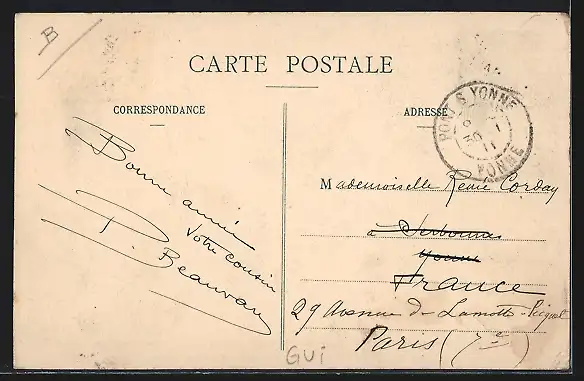 B
CARTE POSTALE
CORRESPONDANCE
ADRESSE
PONT S YONNE
YONNE
30
11
Bonne année
Votre cousin
P. Beauvau
Mademoiselle Renée Corday
à Serbonnes
Yonne
France
29 Avenue de Lamotte-Picquet
Paris (7e)
GUI